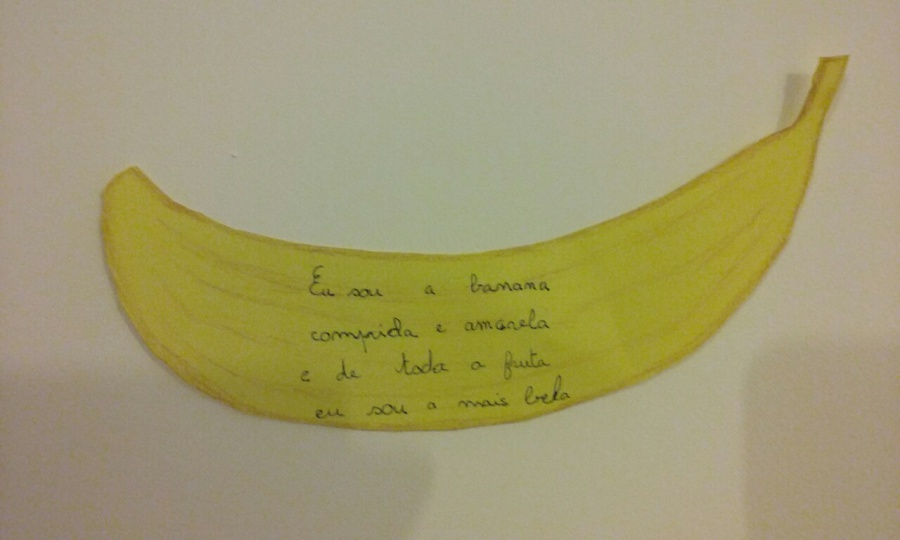 Eu sou a banana
comprida e amarela
e de toda a fruta
eu sou a mais bela